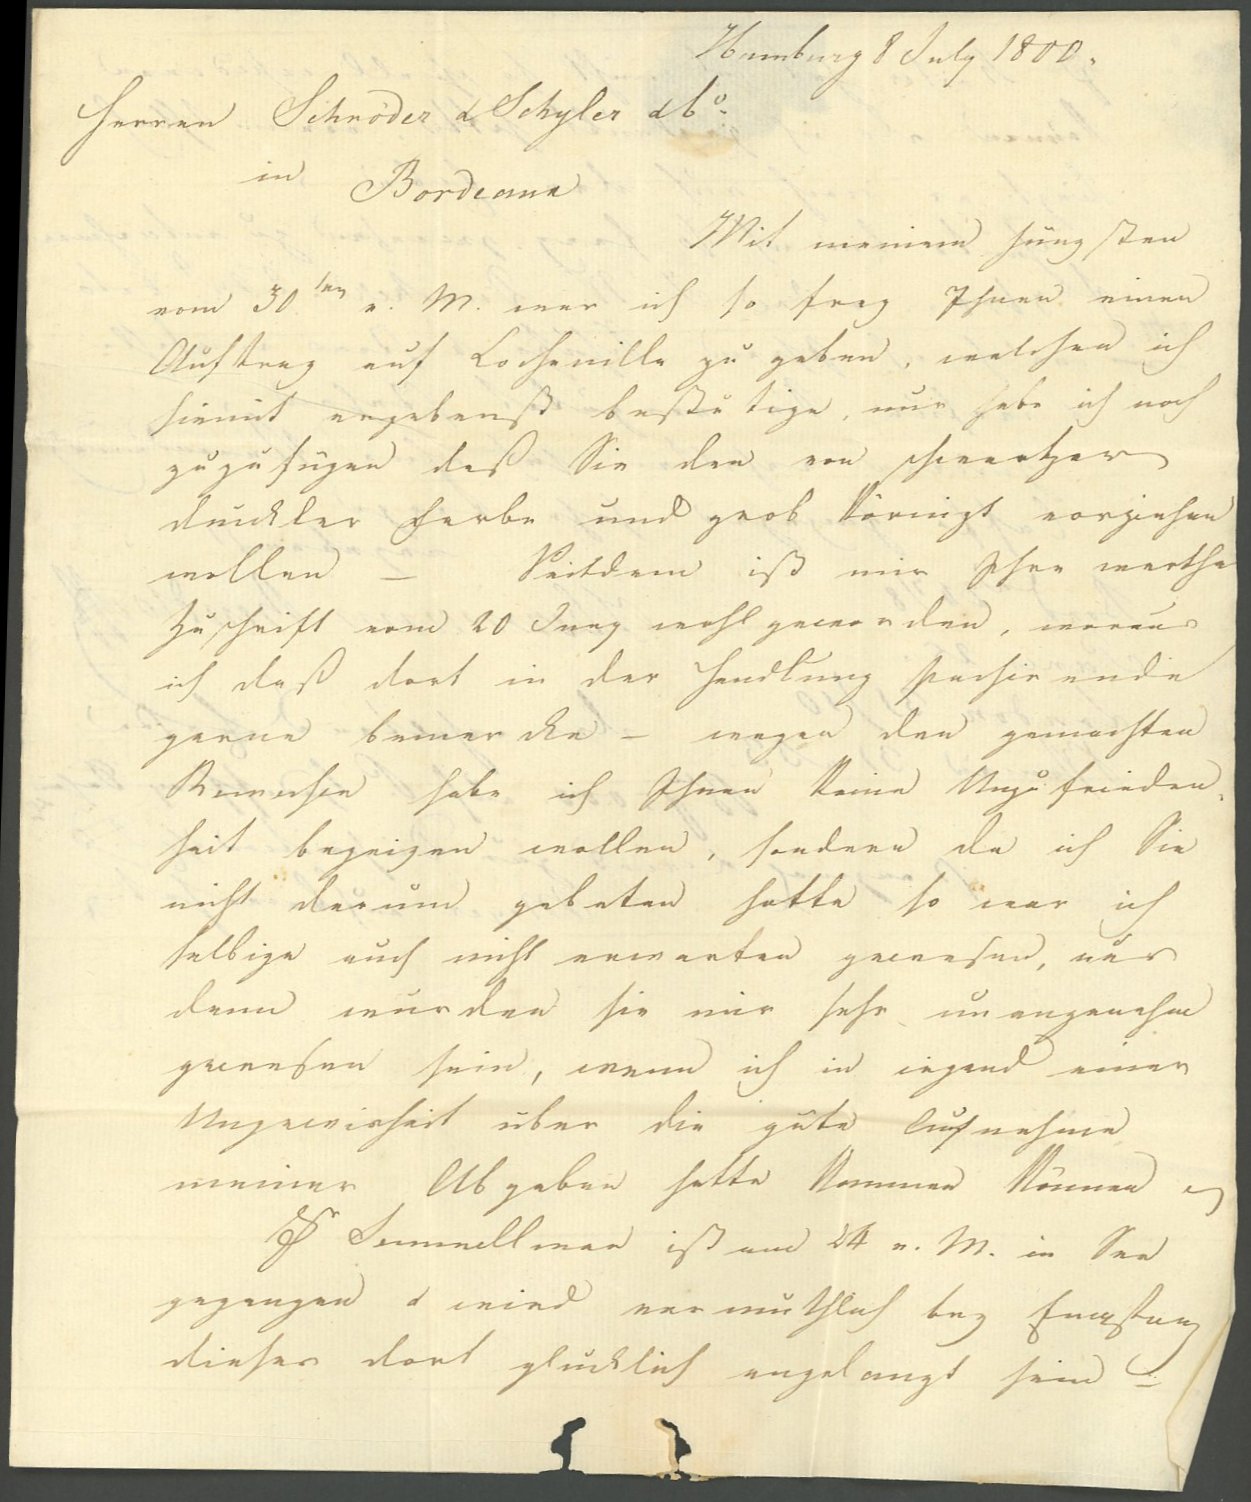 Hamburg 8 July 1800.
Herren Schröder & Schyler & Co.
in Bordeaux
Mit meinem jüngsten
vom 30ten v. M. war ich so frey Ihnen einen
Auftrag auf Cochenille zu geben, welchen ich
hiemit ergebenst bestätige, nur habe ich noch
zuzufügen daß Sie den von schwartzer
dunckler Farbe und grob körnigt vorziehen
wollen – Seitdem ist mir Ihre werthe
Zuschrift vom 20 Juny wohl geworden, woraus
ich daß dort in der Handlung passirende
gerne bemercke – wegen den gemachten
habe ich Ihnen keine Unzufrieden-
heit bezeigen wollen, sondern da ich Sie
nicht darum gebeten hatte so war ich
selbige auch nicht erwarten gewesen, nur
denn wurden sie mir sehr unangenehm
gewesen sein, wenn ich in irgend einer
Ungewisheit über die gute Aufnahme
meiner Abgaben hätte kommen können
ist am 24 v. M. in See
gegangen & wird vermuthlich bey Empfang
dieses dort glücklich angelangt sein –